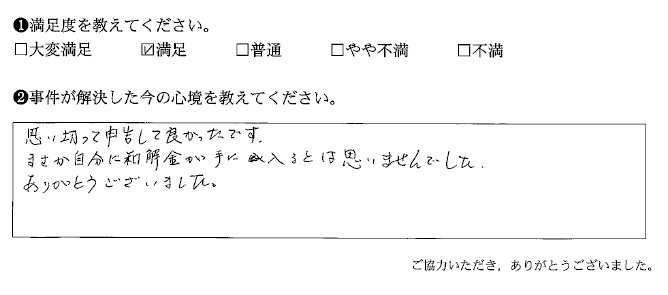 ❶満足度を教えてください。
☐大変満足 ☑満足 ☐普通 ☐やや不満 ☐不満
❷事件が解決した今の心境を教えてください。
思い切って申告して良かったです.
まさか自分に和解金が手に入るとは思いませんでした.
ありがとうございました。
ご協力いただき、ありがとうございました。